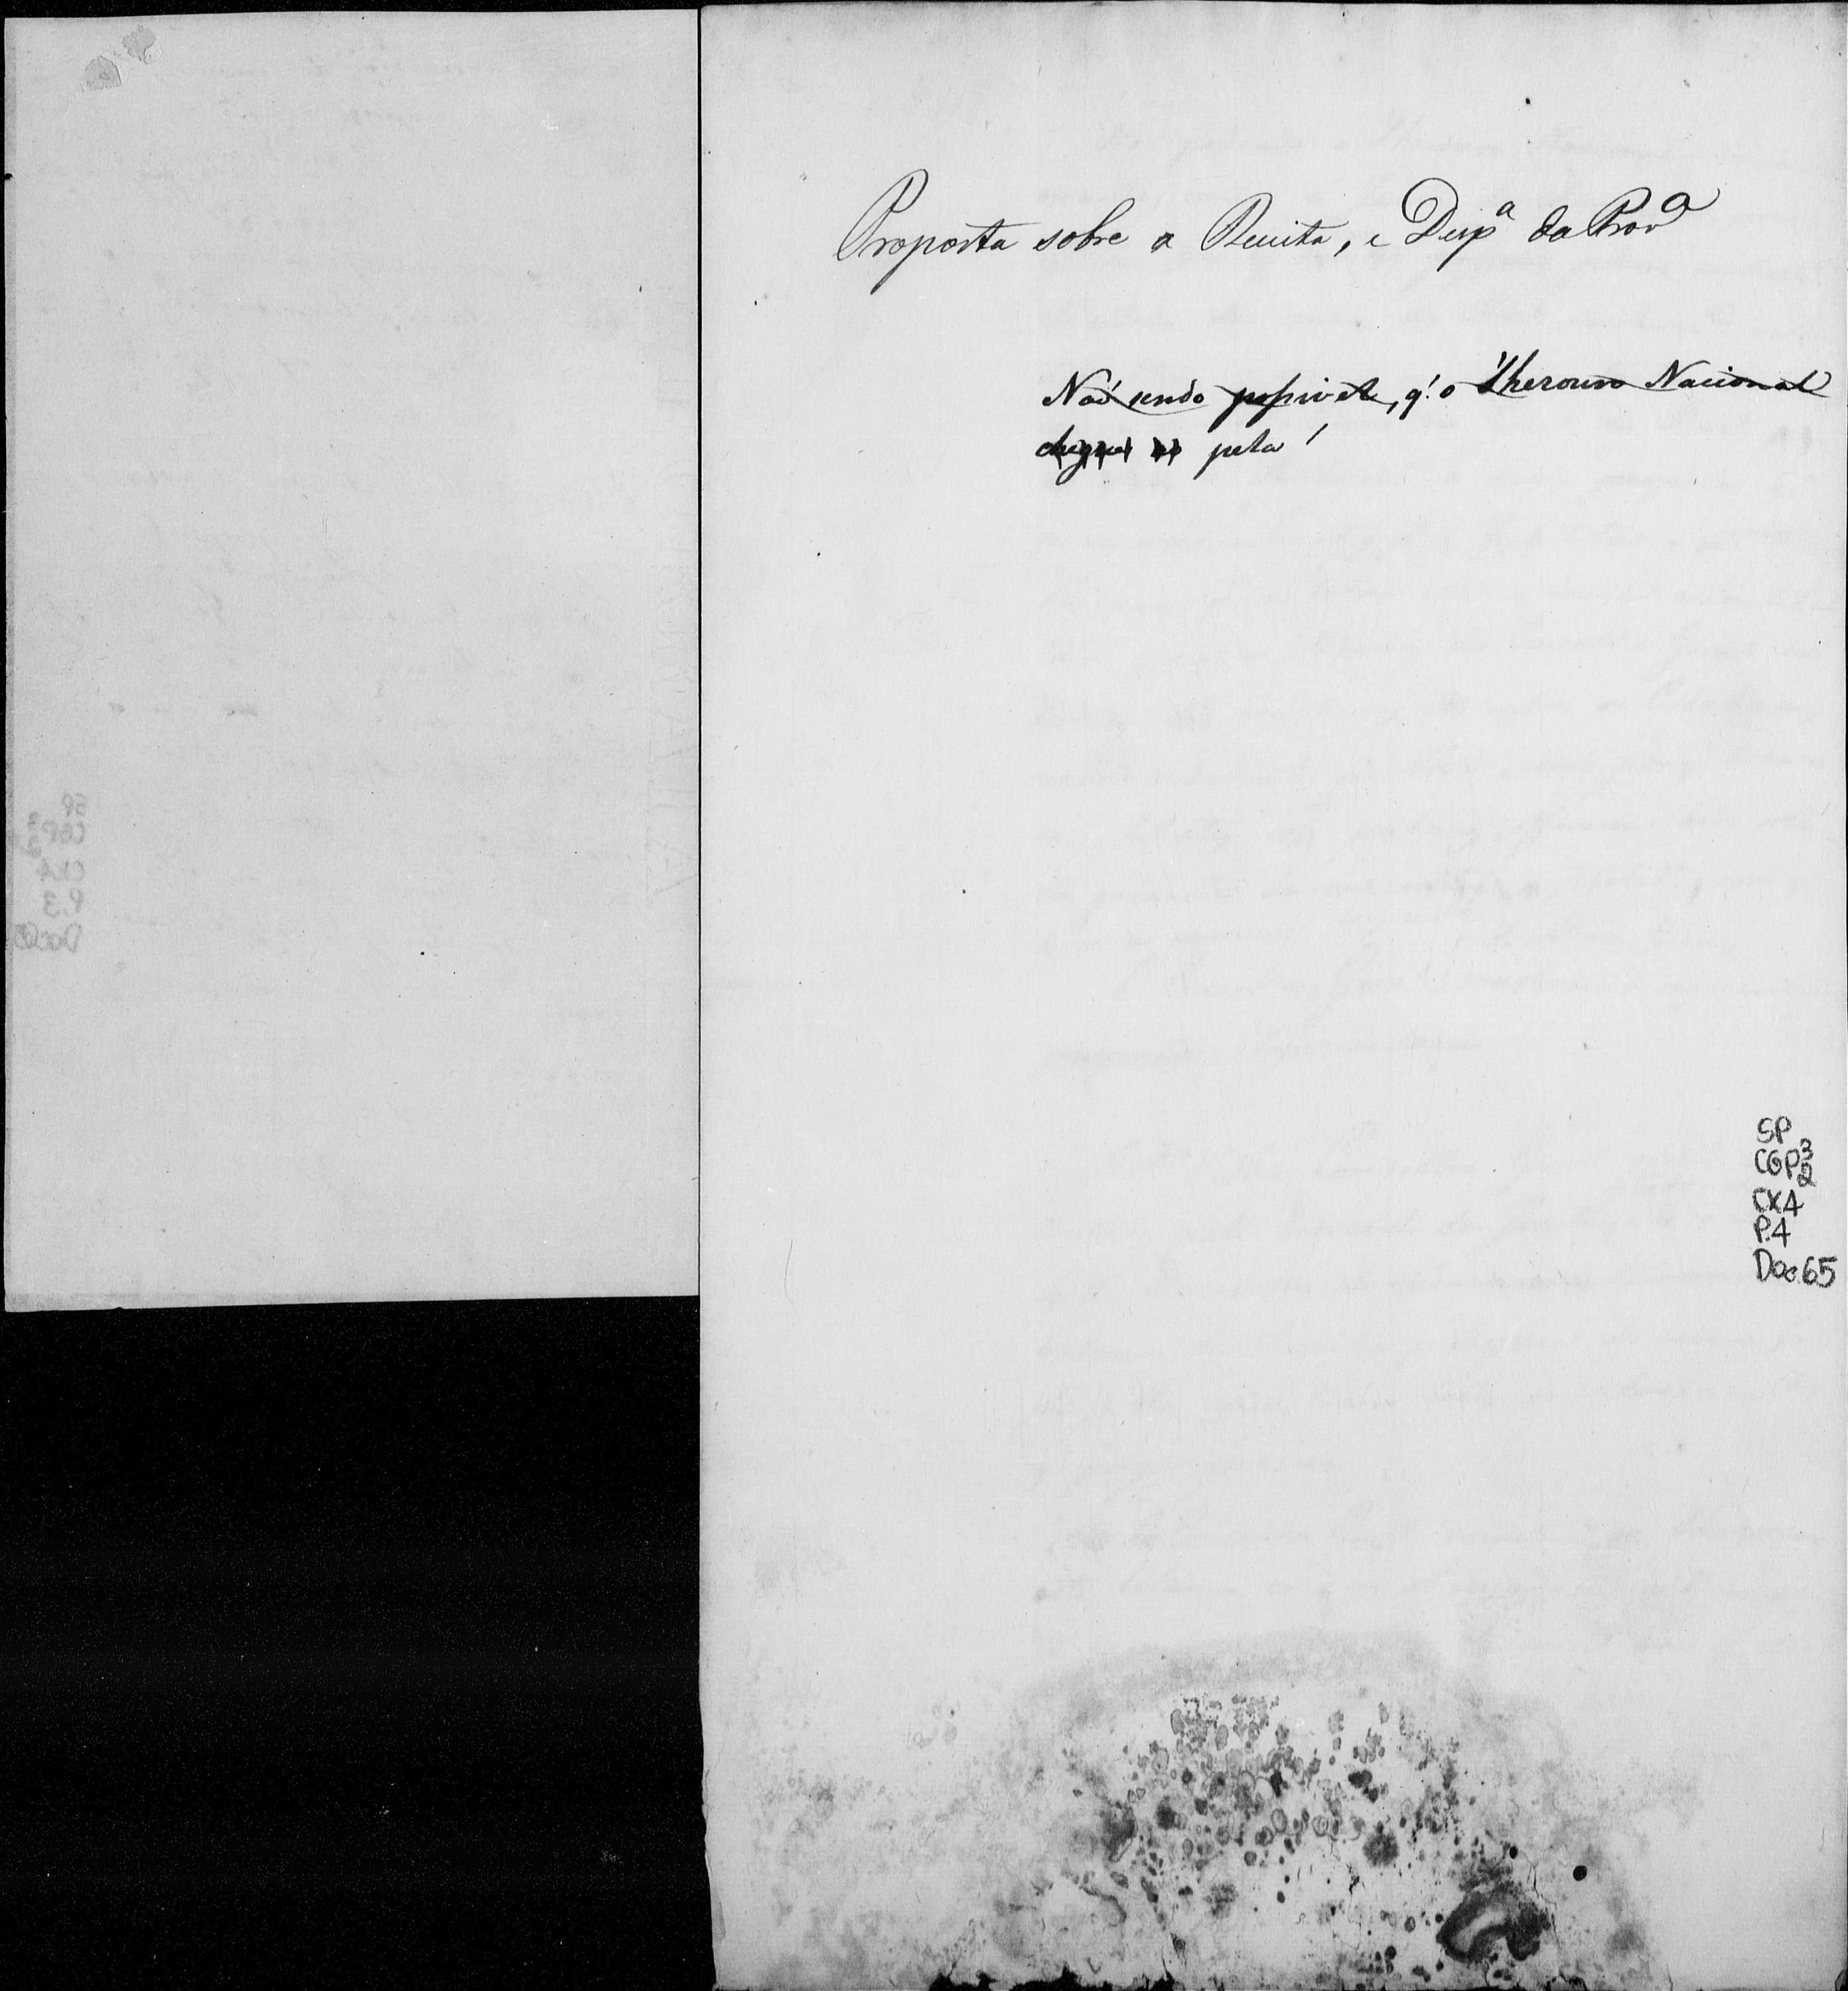 Proposta sobre a Receita, e Desp.ª da Provª
Não sendo possivel, q.' o Thesouro Nacional
chegue pela
SP
CGP 3
2
CX4
P.4
Doc.65